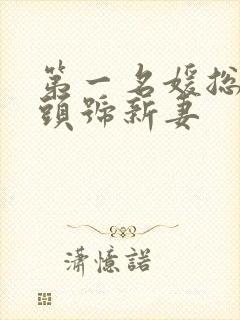 第一名媛总
頭號新妻
潇憶諾